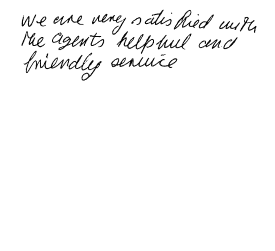 We are very satisfied with
the agents helpful and
friendly service